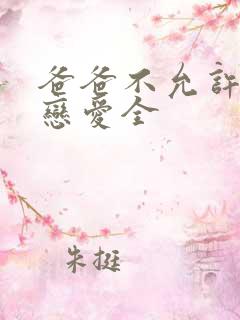 爸爸不允許
戀愛全
朱挺